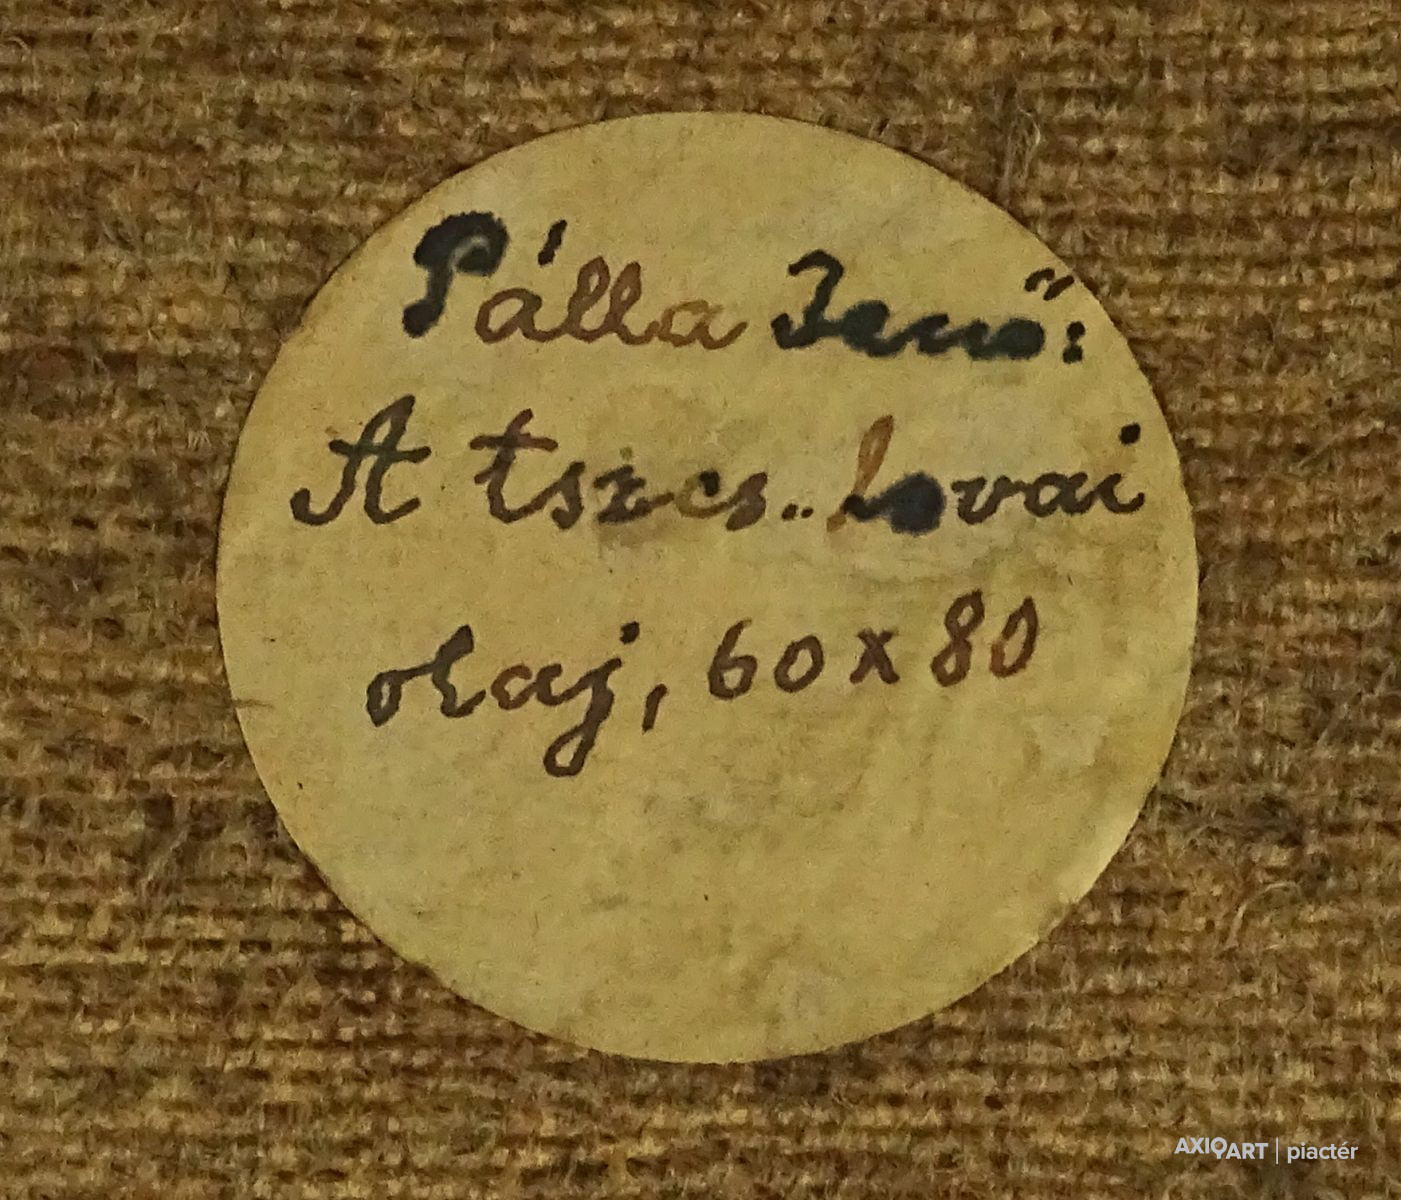 Pálla Jenő:
A tszcs.. lovai
olaj, 60 x 80
AXIOART | piactér